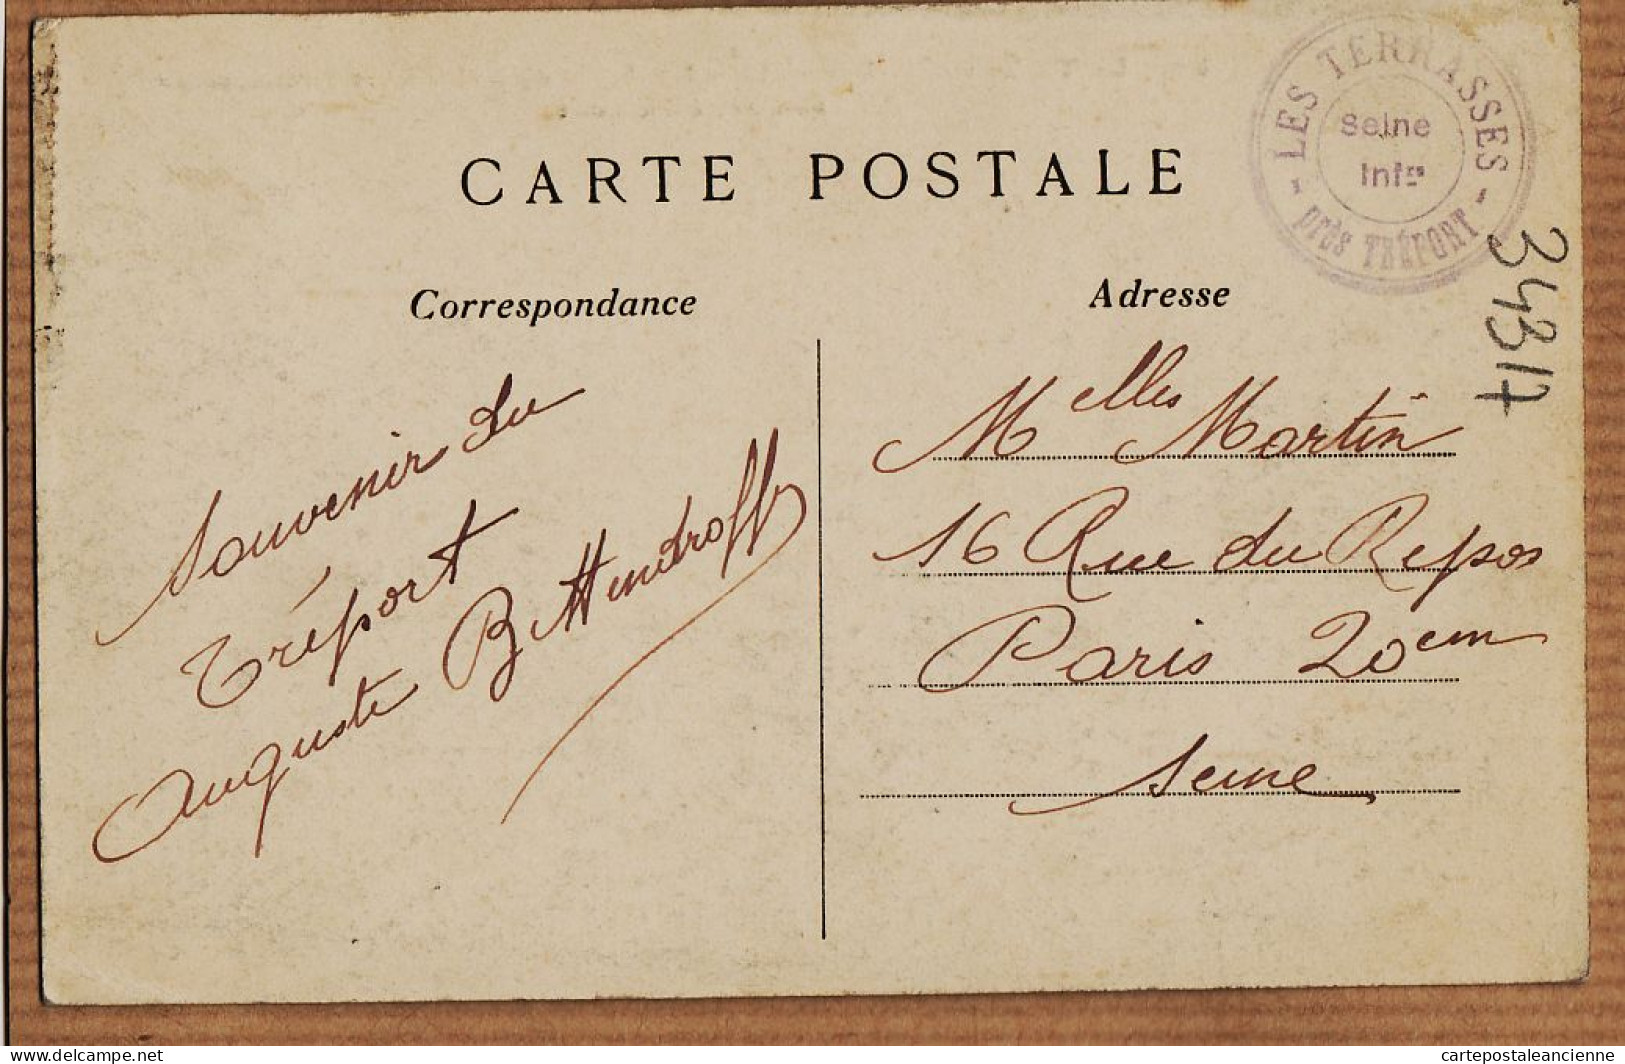 CARTE POSTALE
- LES TERRASSES -
près TRÉPORT
Seine
Infre
34317
Correspondance
Souvenir du
Tréport
Auguste Bettendroff
Adresse
Melles Martin
16 Rue du Repos
Paris 20em
Seine
delcampe.net
cartepostaleancienne